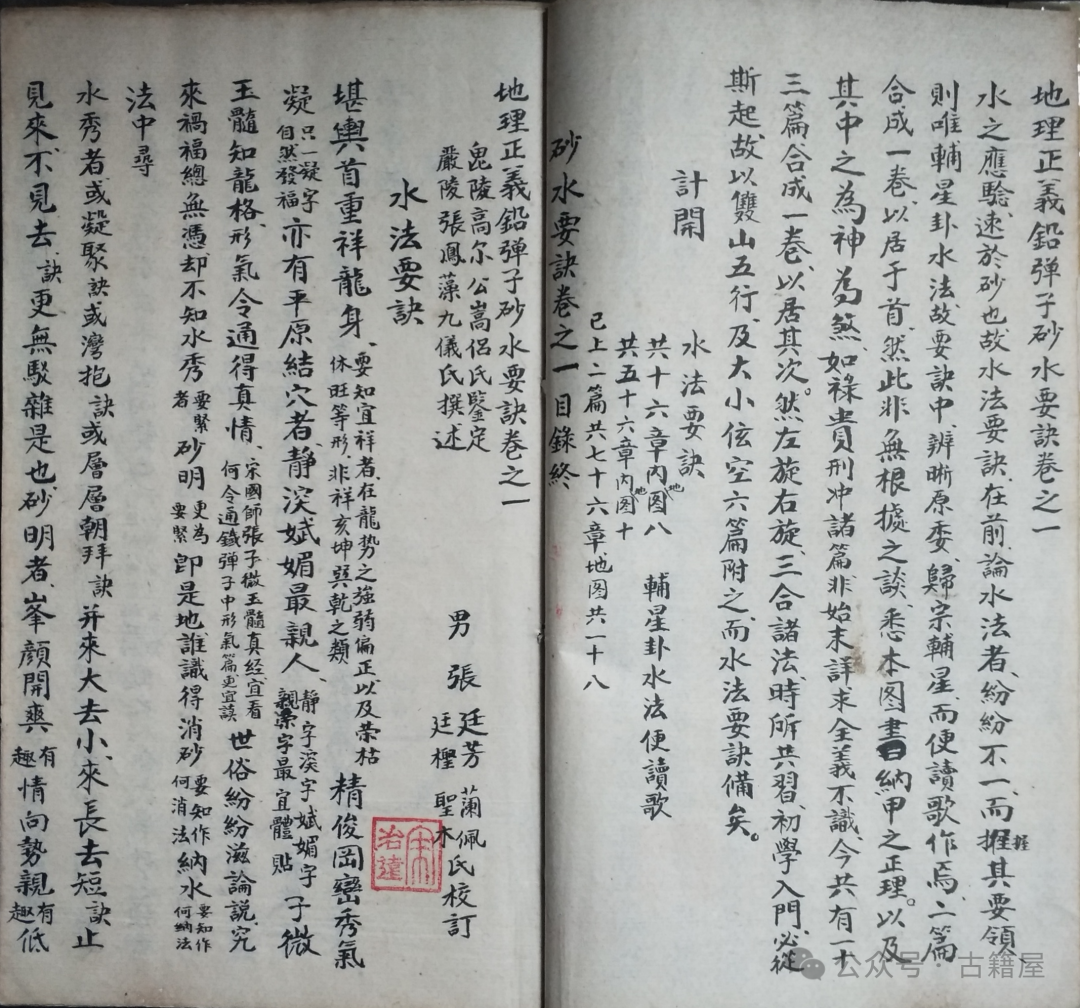 地理正義鉛弹子砂水要訣卷之一
水之應騐速於砂也故水法要訣在前論水法者紛紛不一而握其要領
則唯輔星卦水法故要訣中辨晰原委歸宗輔星而便讀歌作焉二篇
合成一卷以居于首然此非無根據之談悉本图書納甲之正理。以及
其中之為神為煞如禄貴刑冲諸篇非始末詳求全義不識今共有一十
三篇合成一卷以居其次。然左旋右旋三合諸法時所共習初學入門必從
斯起故以雙山五行及大小伭空六篇附之而水法要訣備矣。
計開
水法要訣
共十六章内地图八 輔星卦水法便讀歌
共五十六章内地图十
已上二篇共七十六章地图共一十八
砂水要訣卷之一目錄終
地理正義鉛弹子砂水要訣卷之一
毘陵高尔公嵩侣氏鑒定
嚴陵張鳳藻九儀氏撰述
男 張 廷芳 蘭佩 氏校訂
廷樫 聖木
水法要訣
堪輿首重祥龍身要知宜祥者在龍勢之強弱偏正以及荣枯休旺等形非祥亥坤巽乾之類精俊岡巒秀氣
凝只一凝字自然發福亦有平原結穴者静深斌媚最親人静字深字斌媚字親字最宜體貼子微
玉髓知龍格形氣令通得真情宋國師張子微玉髓真经宜看何令通鐵弹子中形氣篇更宜讀世俗紛紛滋論説究
來禍福總無憑却不知水秀要緊者砂明更為要緊即是地誰識得消砂要知作何消法納水要知作何納法
法中尋
水秀者或凝聚訣或灣抱訣或層層朝拜訣并來大去小來長去短訣止
見來不見去訣更無駁雜是也砂明者峯顔開爽有趣情向勢親有趣低
宋治達
公众号 古籍屋